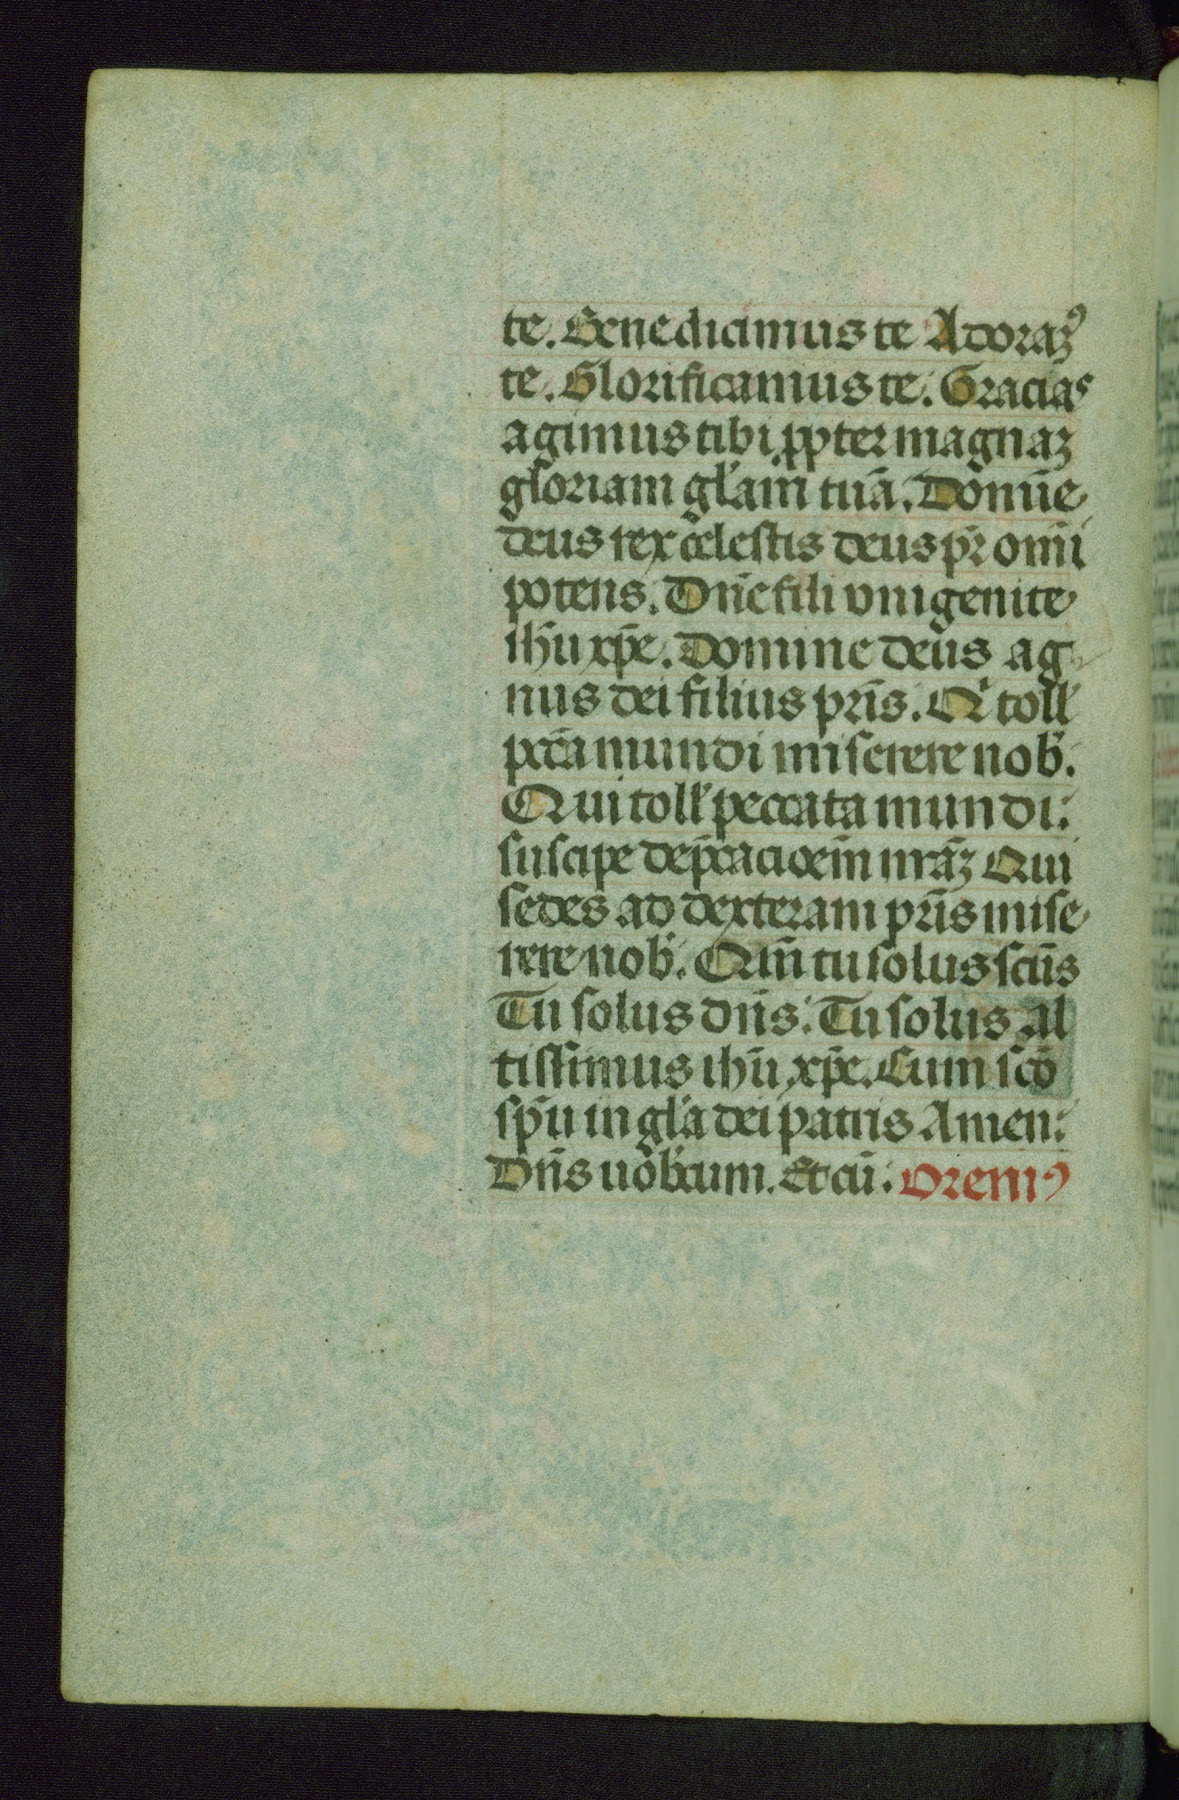 te. Benedicimus te Adoramꝰ
te. Glorificamus te. Gracias
agimus tibi ꝓpter magnaꝫ
gloriam gl̄am tuā. Domīe
deus rex celestis deus pr̄ omīi
potens. Dn̄e fili vnigenite
ihū xp̄e. Domine deus ag
nus dei filius pr̄is. Qⁱ toll'
pcc̄a mundi miserere nob'.
Qui toll' peccata mundi:
suscipe dep̄cacioem̄ nr̄aꝫ Qui
sedes ad dexteram pr̄is mise
rere nob'. Qm̄ tu solus sc̄us
Tu solus dn̄s. Tu solus al
tissimus ihū xp̄e. Cum sc̄o
sp̄u in gl̄a dei patris Amen.
Dn̄s uobcum. Et cū. Oremꝰ